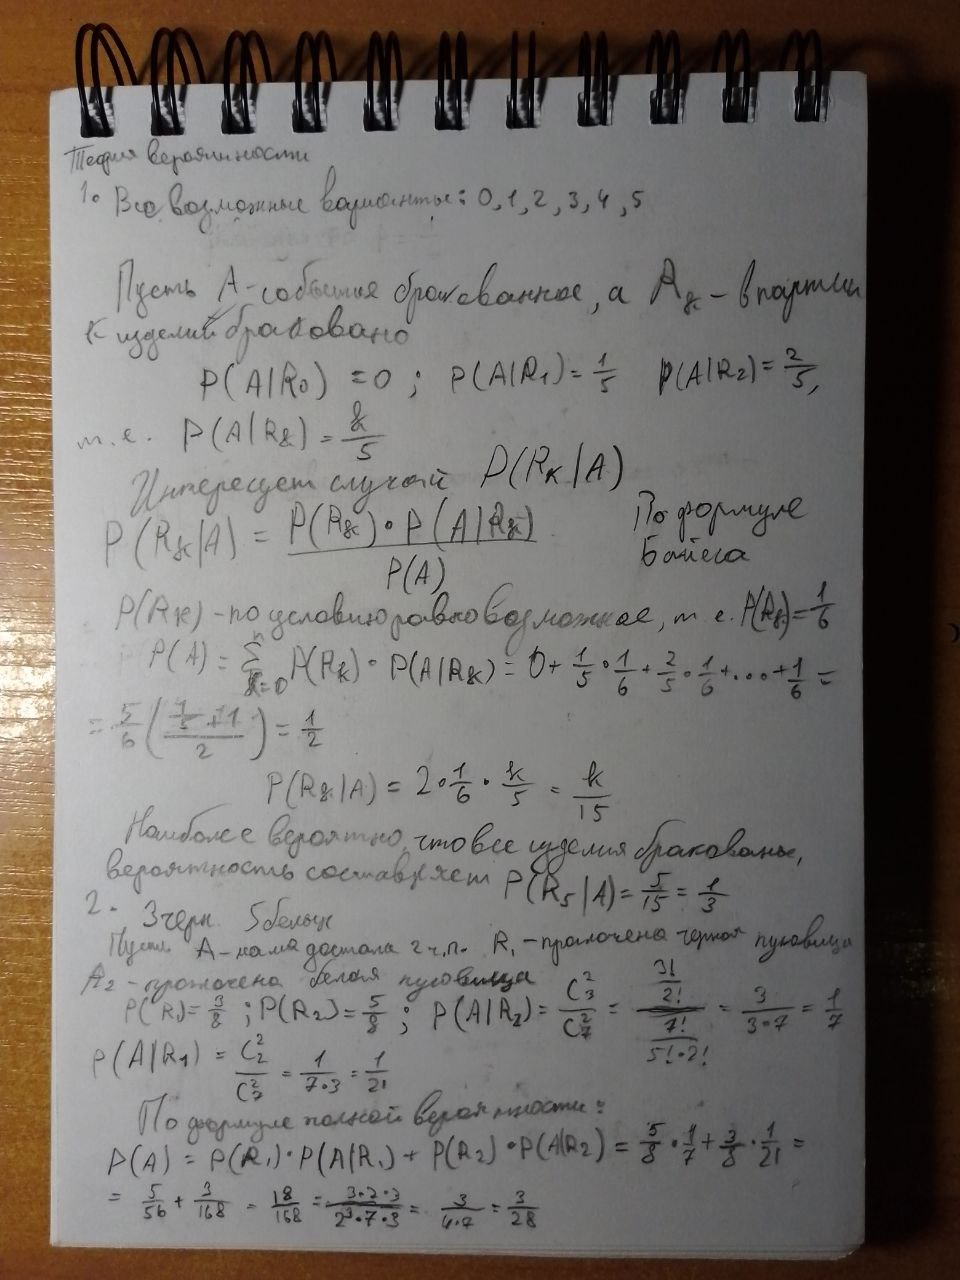 Теория вероятности
1. Все возможные варианты: 0, 1, 2, 3, 4, 5
Пусть A - событие бракованное, а R_k - в партии
к изделий браковано
P(A|R_0) = 0 ; P(A|R_1) = 1/5 P(A|R_2) = 2/5,
т.е. P(A|R_k) = k/5
Интересует случай P(R_k|A)
P(R_k|A) = P(R_k) • P(A|R_k) / P(A) По формуле Байеса
P(R_k) - по условию равновозможное, т.е. P(R_k) = 1/6
P(A) = Σ_{k=0}^{n} P(R_k) • P(A|R_k) = 0 + 1/5 • 1/6 + 2/5 • 1/6 + ... + 1/6 =
= 5/6 ((1/5 + 1)/2) = 1/2
P(R_k|A) = 2 • 1/6 • k/5 = k/15
Наиболее вероятно, что все изделия бракованы,
вероятность составляет P(R_5|A) = 5/15 = 1/3
2. 3 черн. 5 белых
Пусть A - мама достала 2 ч.п. R_1 - проглочена черная пуговица
R_2 - проглочена белая пуговица
P(R_1) = 3/8 ; P(R_2) = 5/8 ; P(A|R_2) = C_3^2 / C_7^2 = (3!/2!) / (7!/(5!•2!)) = 3/(3•7) = 1/7
P(A|R_1) = C_2^2 / C_7^2 = 1/(7•3) = 1/21
По формуле полной вероятности:
P(A) = P(R_1) • P(A|R_1) + P(R_2) • P(A|R_2) = 5/8 • 1/7 + 3/8 • 1/21 =
= 5/56 + 3/168 = 18/168 = (3•2•3)/(2^3•7•3) = 3/(4•7) = 3/28